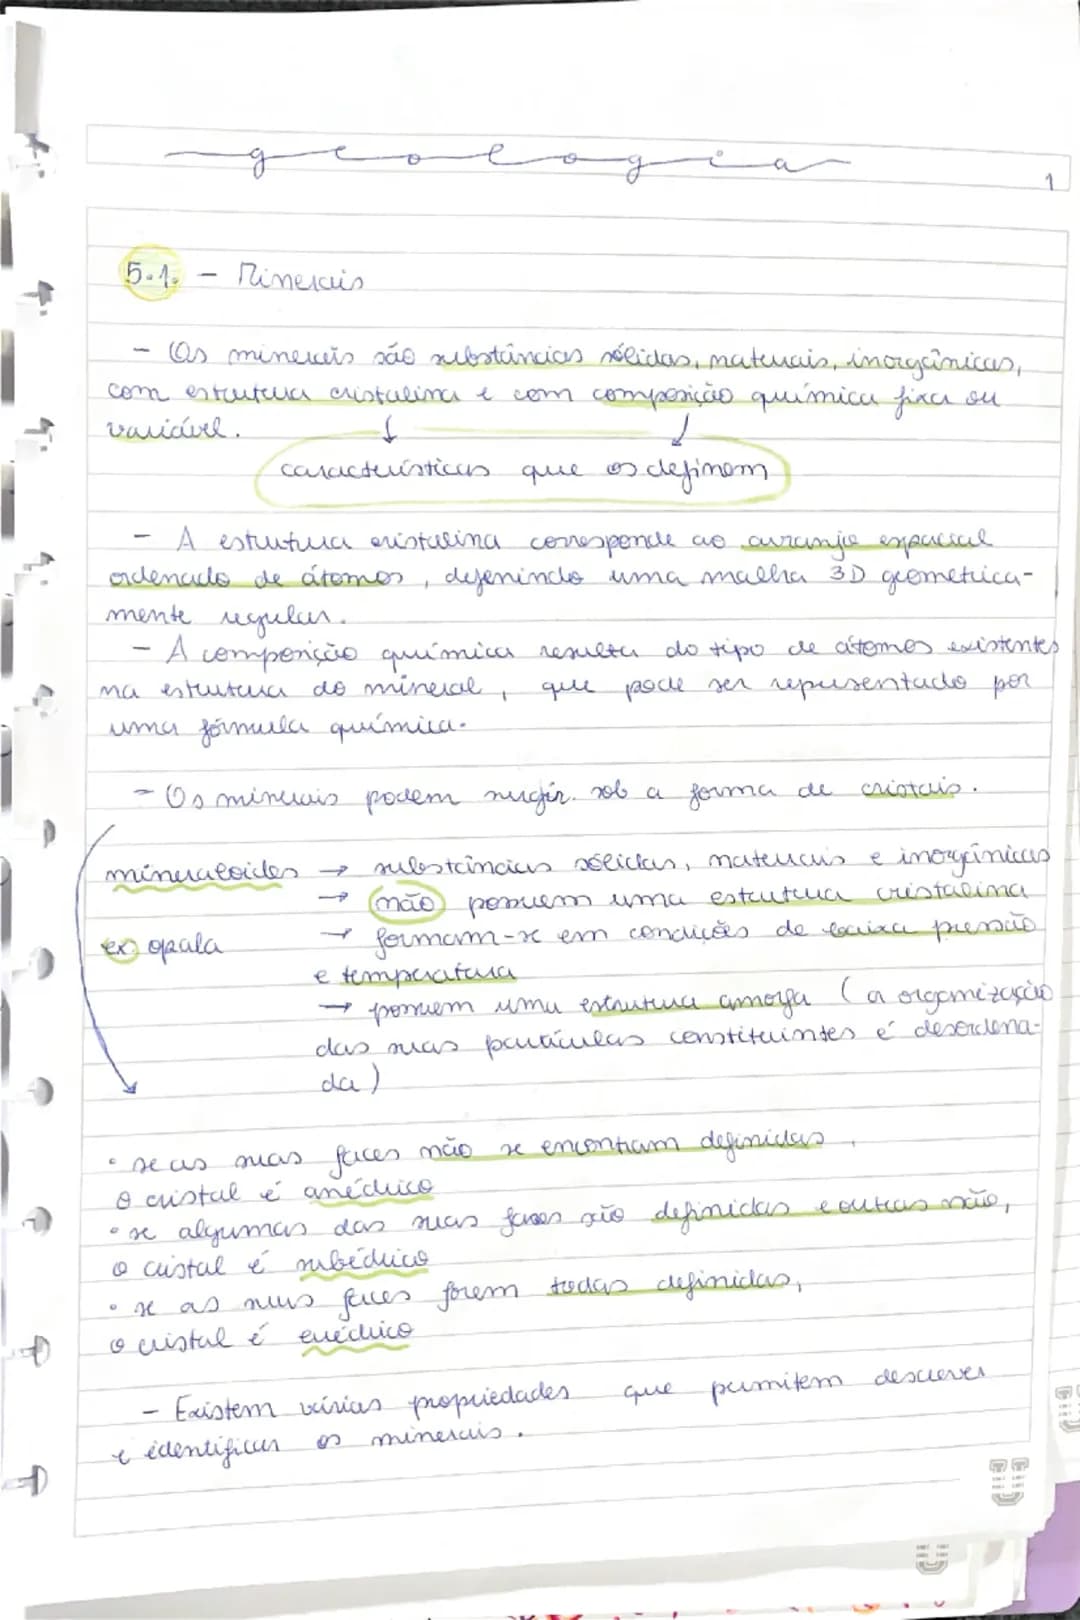 geologia
1
5.1. - Minerais
- Os minerais são substâncias sólidas, naturais, inorgânicas,
com estrutura cristalina e com composição química fixa ou
variável.
características que os definem
- A estrutura cristalina corresponde ao arranjo espacial
ordenado de átomos, defenindo uma malha 3D geometrica-
mente regular.
- A composição química resulta do tipo de átomos existentes
na estrutura do mineral, que pode ser representado por
uma fórmula química.
- Os minerais podem surgir sob a forma de cristais.
mineraloides → substâncias sólidas, naturais e inorgânicas
→ não possuem uma estrutura cristalina
ex opala → formam-se em condições de baixa pressão
e temperatura
→ possuem uma estrutura amorfa (a organização
das suas partículas constituintes é desordena-
da)
• se as suas faces não se encontram definidas,
o cristal é anédrico
• se algumas das suas faces são definidas e outras não,
o cristal é subédrico
• se as suas faces forem todas definidas,
o cristal é euédrico
- Existem várias propriedades que permitem descrever
e identificar os minerais.